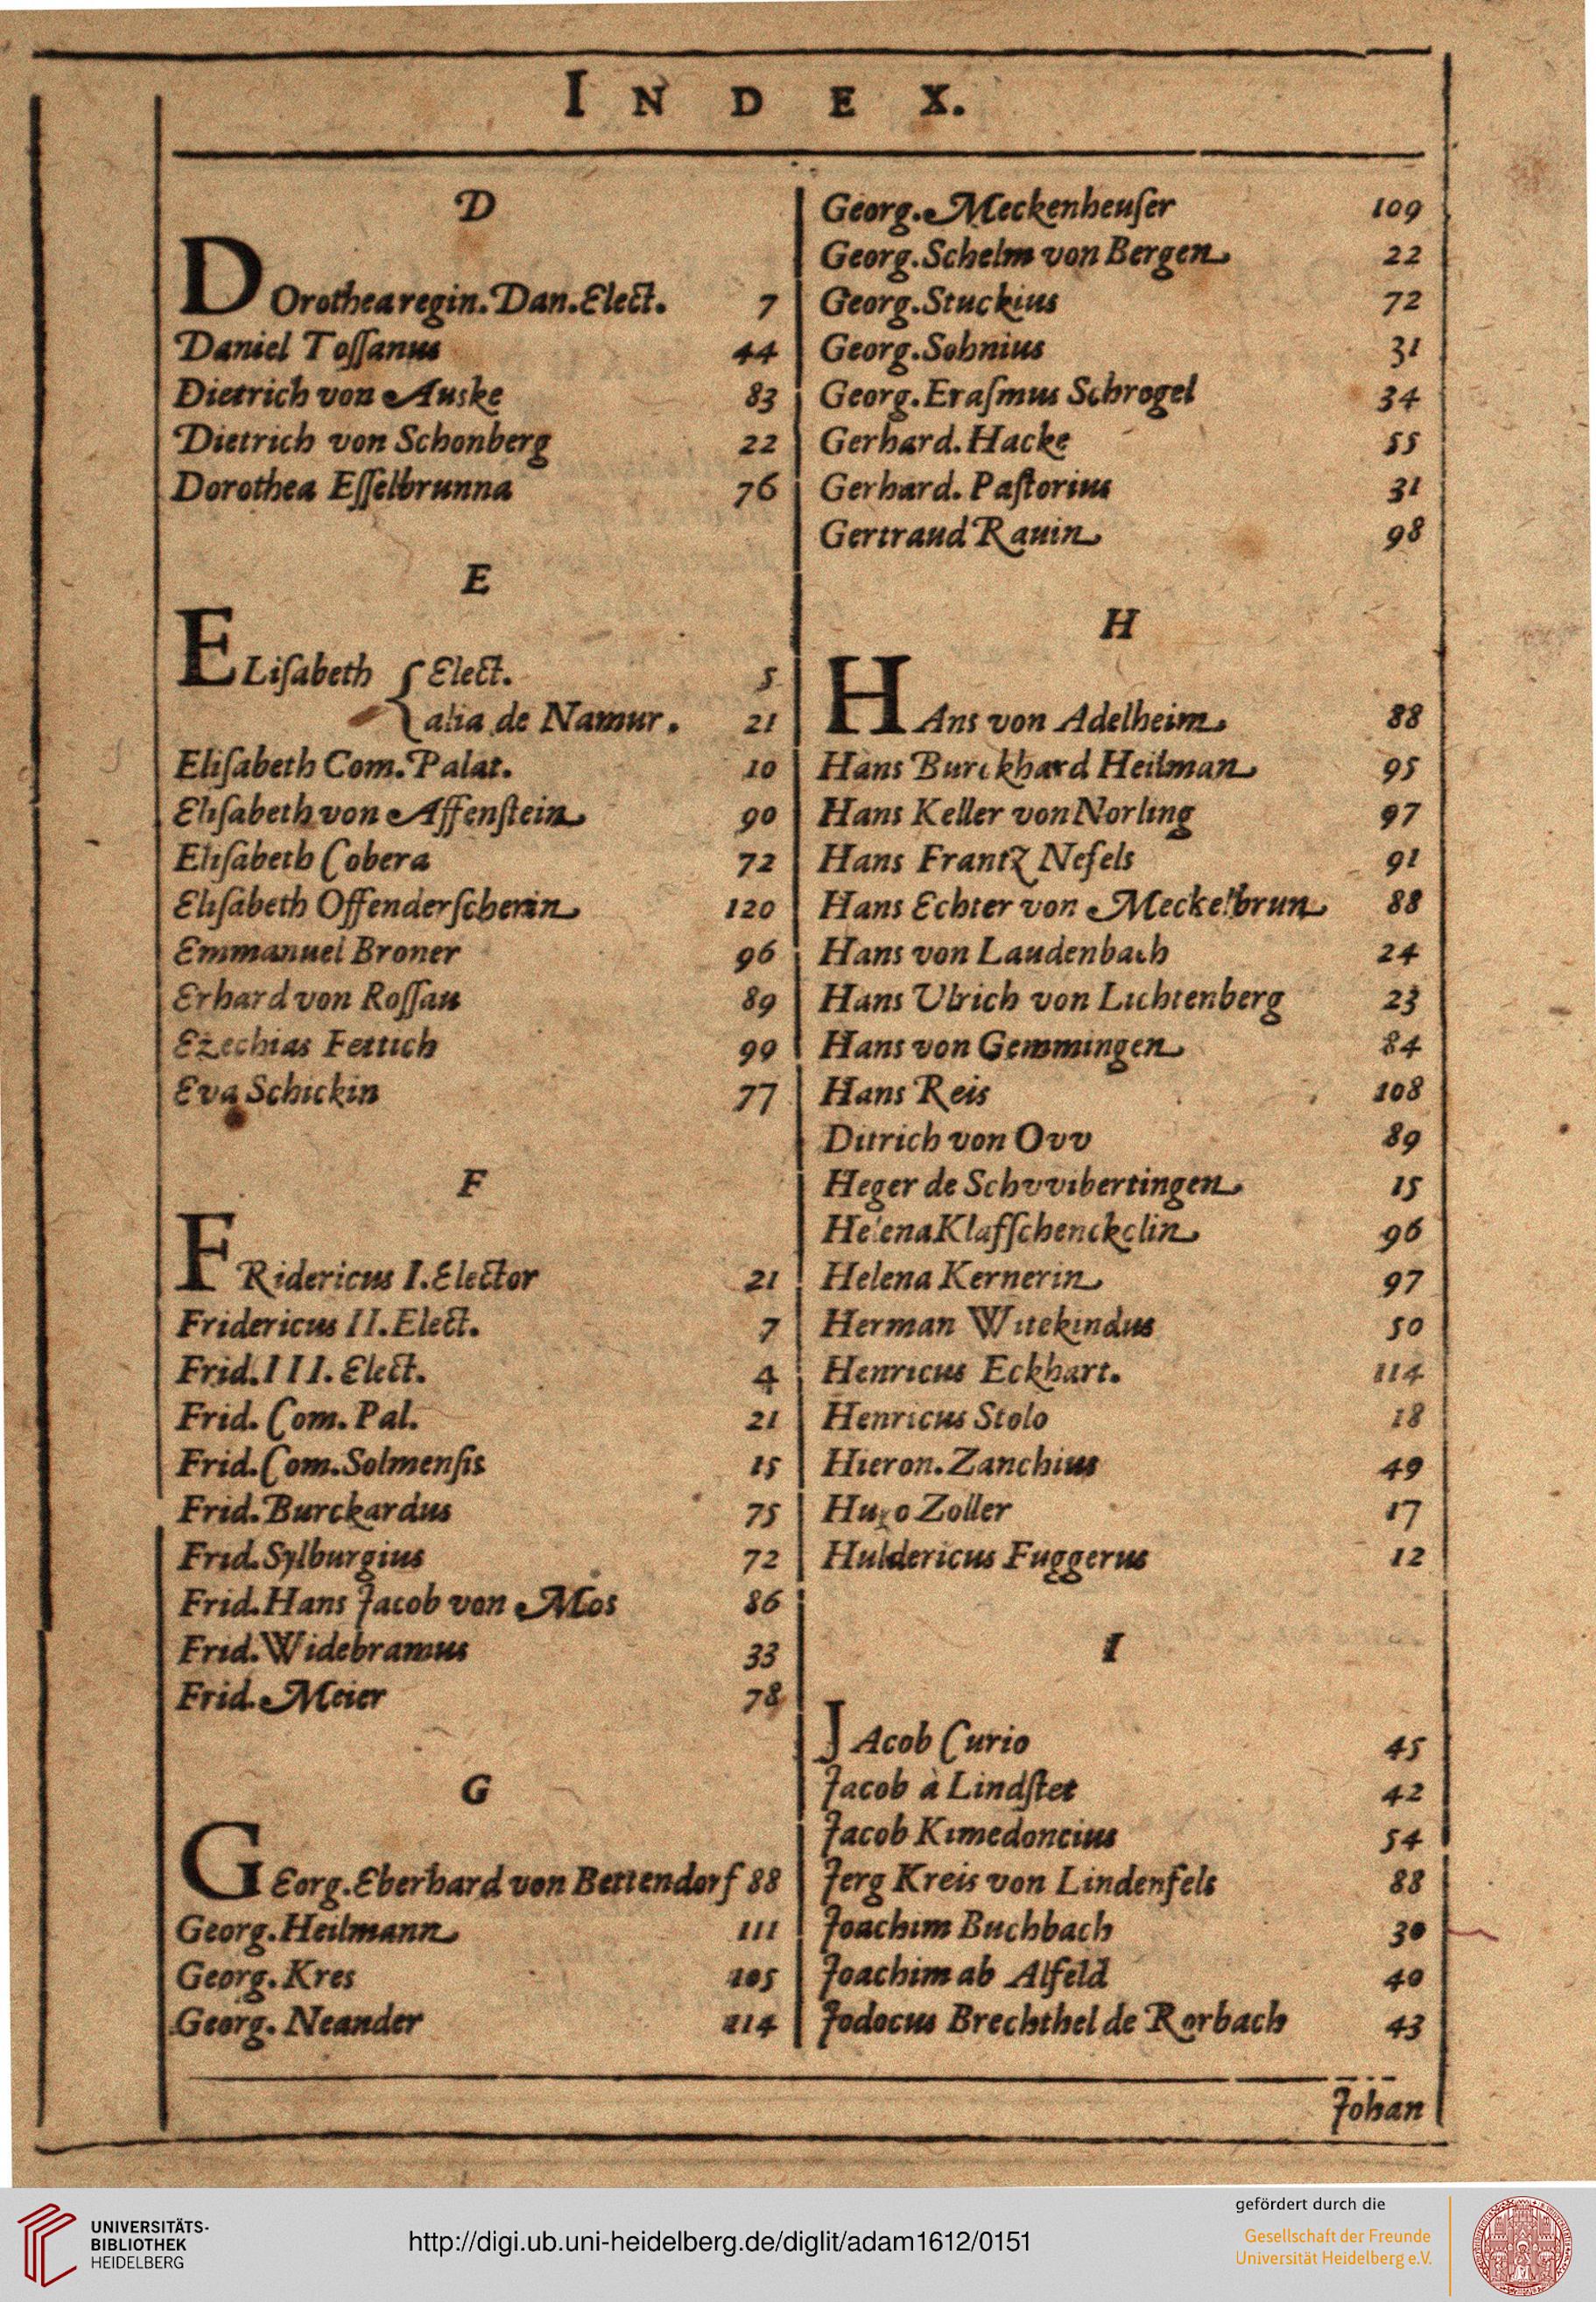 INDEX.
D
DOrothea regin. Dan. Elect. 7
Daniel Toſſanus 44
Dietrich von Auske 83
Dietrich von Schonberg 22
Dorothea Eſſelbrunna 76
E
ELiſabeth { Elect. 5
alia de Namur. 21
Eliſabeth Com. Palat. 10
Eliſabeth von Affenſtein 90
Eliſabeth Cobera 72
Eliſabeth Offenderſcherin 120
Emmanuel Broner 96
Erhard von Roſſau 89
Ezechias Fettich 99
Eva Schickin 77
F
FRidericus I. Elector 21
Fridericus II. Elect. 7
Frid. III. Elect. 4
Frid. Com. Pal. 21
Frid. Com. Solmenſis 15
Frid. Burckardus 75
Frid. Sylburgius 72
Frid. Hans Jacob von Mos 86
Frid. Widebramus 33
Frid. Meier 78
G
GEorg. Eberhard von Bettendorf 88
Georg. Heilmann 111
Georg. Kres 105
Georg. Neander 114
Georg. Meckenheuſer 109
Georg. Schelm von Bergen 22
Georg. Stuckius 72
Georg. Sohnius 31
Georg. Eraſmus Schrogel 34
Gerhard. Hacke 55
Gerhard. Paſtorius 31
Gertraud Rauin 98
H
HAns von Adelheim 88
Hans Burckhard Heilman 95
Hans Keller von Norling 97
Hans Frantz Neſels 91
Hans Echter von Meckelbrun 88
Hans von Laudenbach 24
Hans Ulrich von Lichtenberg 23
Hans von Gemmingen 84
Hans Reis 108
Ditrich von Ovv 89
Heger de Schvvibertingen 15
Helena Klafſchenckclin 96
Helena Kernerin 97
Herman Witekindus 50
Henricus Eckhart. 114
Henricus Stolo 18
Hieron. Zanchius 49
Hugo Zoller 17
Huldericus Fuggerus 12
I
JAcob Curio 45
Jacob à Lindſtet 42
Jacob Kimedoncius 54
Jerg Kreis von Lindenfels 88
Joachim Buchbach 30
Joachim ab Alfeld 40
Jodocus Brechthel de Rorbach 43
Johan
UNIVERSITÄTS-
BIBLIOTHEK
HEIDELBERG
http://digi.ub.uni-heidelberg.de/diglit/adam1612/0151
gefördert durch die
Gesellschaft der Freunde
Universität Heidelberg e.V.